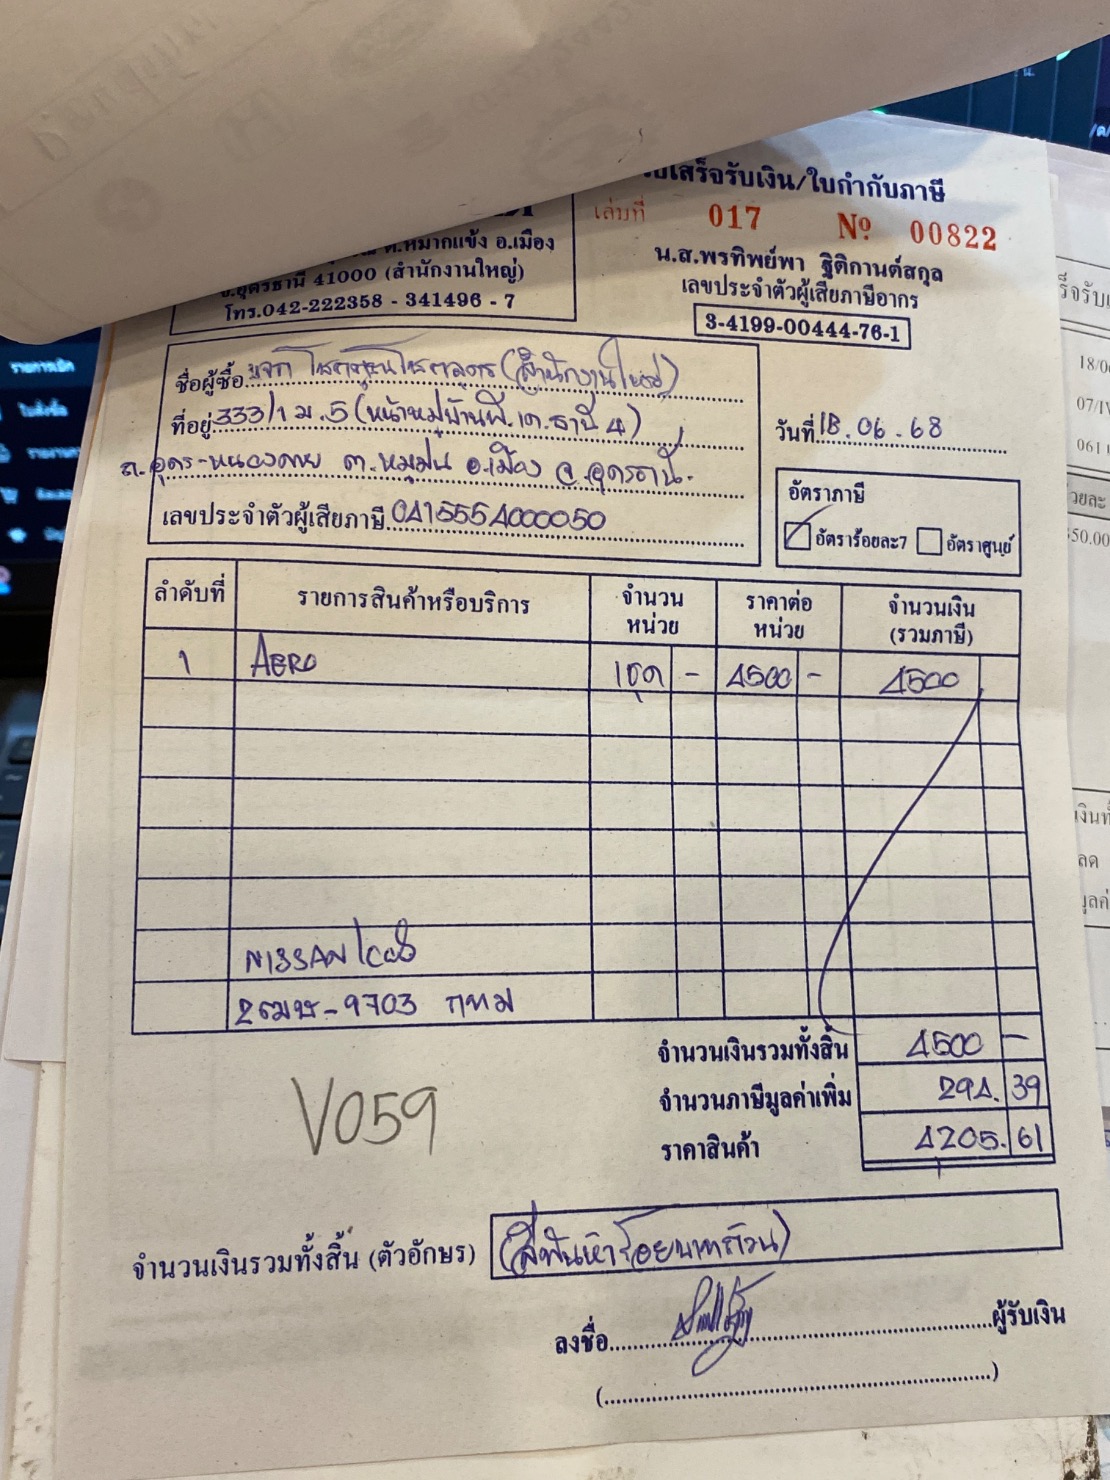 เสร็จรับเงิน/ใบกำกับภาษี
เล่มที่ 017 Nº 00822
ต.หมากแข้ง อ.เมือง
จ.อุดรธานี 41000 (สำนักงานใหญ่)
โทร.042-222358 - 341496 - 7
น.ส.พรทิพย์พา ฐิติกานต์สกุล
เลขประจำตัวผู้เสียภาษีอากร
3-4199-00444-76-1
ชื่อผู้ซื้อ (สำนักงานใหญ่)
ที่อยู่ 333/1 ม.5 (หน้าหมู่บ้านพี.เค.ธานี 4)
ถ.อุดร-หนองคาย ต.หมูม่น อ.เมือง จ.อุดรธานี.
เลขประจำตัวผู้เสียภาษี 0415554000050
วันที่ 18.06.68
อัตราภาษี
อัตราร้อยละ7 อัตราศูนย์
ลำดับที่ รายการสินค้าหรือบริการ จำนวนหน่วย ราคาต่อหน่วย จำนวนเงิน (รวมภาษี)
1 AERO 1ชุด - 4500 - 4500
NISSAN
9703 กทม
จำนวนเงินรวมทั้งสิ้น 4500 -
จำนวนภาษีมูลค่าเพิ่ม 294.39
ราคาสินค้า 4205.61
V059
จำนวนเงินรวมทั้งสิ้น (ตัวอักษร) (สี่พันห้าร้อยบาทถ้วน)
ลงชื่อ ผู้รับเงิน
18/0
07/IV
061
50.00